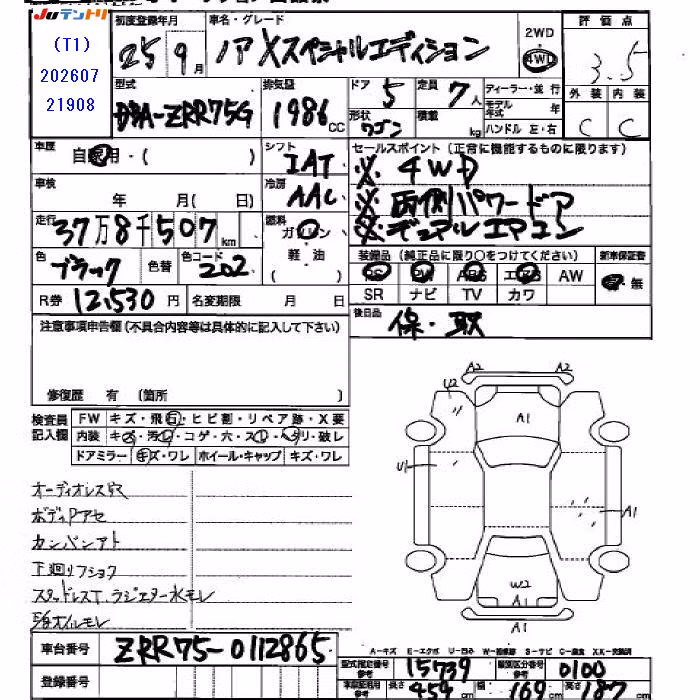 JUテントリ
(T1)
202607
21908
初度登録年月 25年 9月
車名・グレード ノア Xスペシャルエディション
2WD 4WD
評価点 3.5
外装 C 内装 C
型式 DBA-ZRR75G
排気量 1986 CC
ドア 5
形状 ワゴン
定員 7人
積載 kg
ディーラー・並行
モデル年式 年
ハンドル 左・右
車歴 自家用・( )
シフト IAT
セールスポイント (正常に機能するものに限ります)
※ 4WD
※ 両側パワードア
※ デュアルエアコン
車検 年 月( 日)
冷房 AAC
走行 37万8千507 km
燃料 ガソリン 軽・油 ( )
色 ブラック 色替
色コード 202
装備品 (純正品に限り○をつけてください)
新車保証書 無
PS PW ABS エアB AW
SR ナビ TV カワ
R券 12,530 円
名変期限 月 日
後日品 保・取
注意事項申告欄 (不具合内容等は具体的に記入して下さい)
修復歴 有 (箇所 )
検査員記入欄
FW キズ・飛石・ヒビ割・リペア跡・X要
内装 キズ・汚レ・コゲ・穴・スレ・ヘタリ・破レ
ドアミラー キズ・ワレ ホイール・キャップ キズ・ワレ
オーディオレス穴
ボディPアセ
カンバンアト
下廻リフショク
スタッドレスT、ラジエター水モレ
オイルモレ
A2 A2
U2
A1
U1
A1
W2
A1
A1
車台番号 ZRR75-0112865
登録番号
A-キズ E-エクボ U-凹み W-補修跡 S-サビ C-腐食 XX-交換済
型式指定番号 参考 15739
類別区分番号 参考 0100
車両記載寸 参考 長さ 459 cm 幅 169 cm 高さ 187 cm